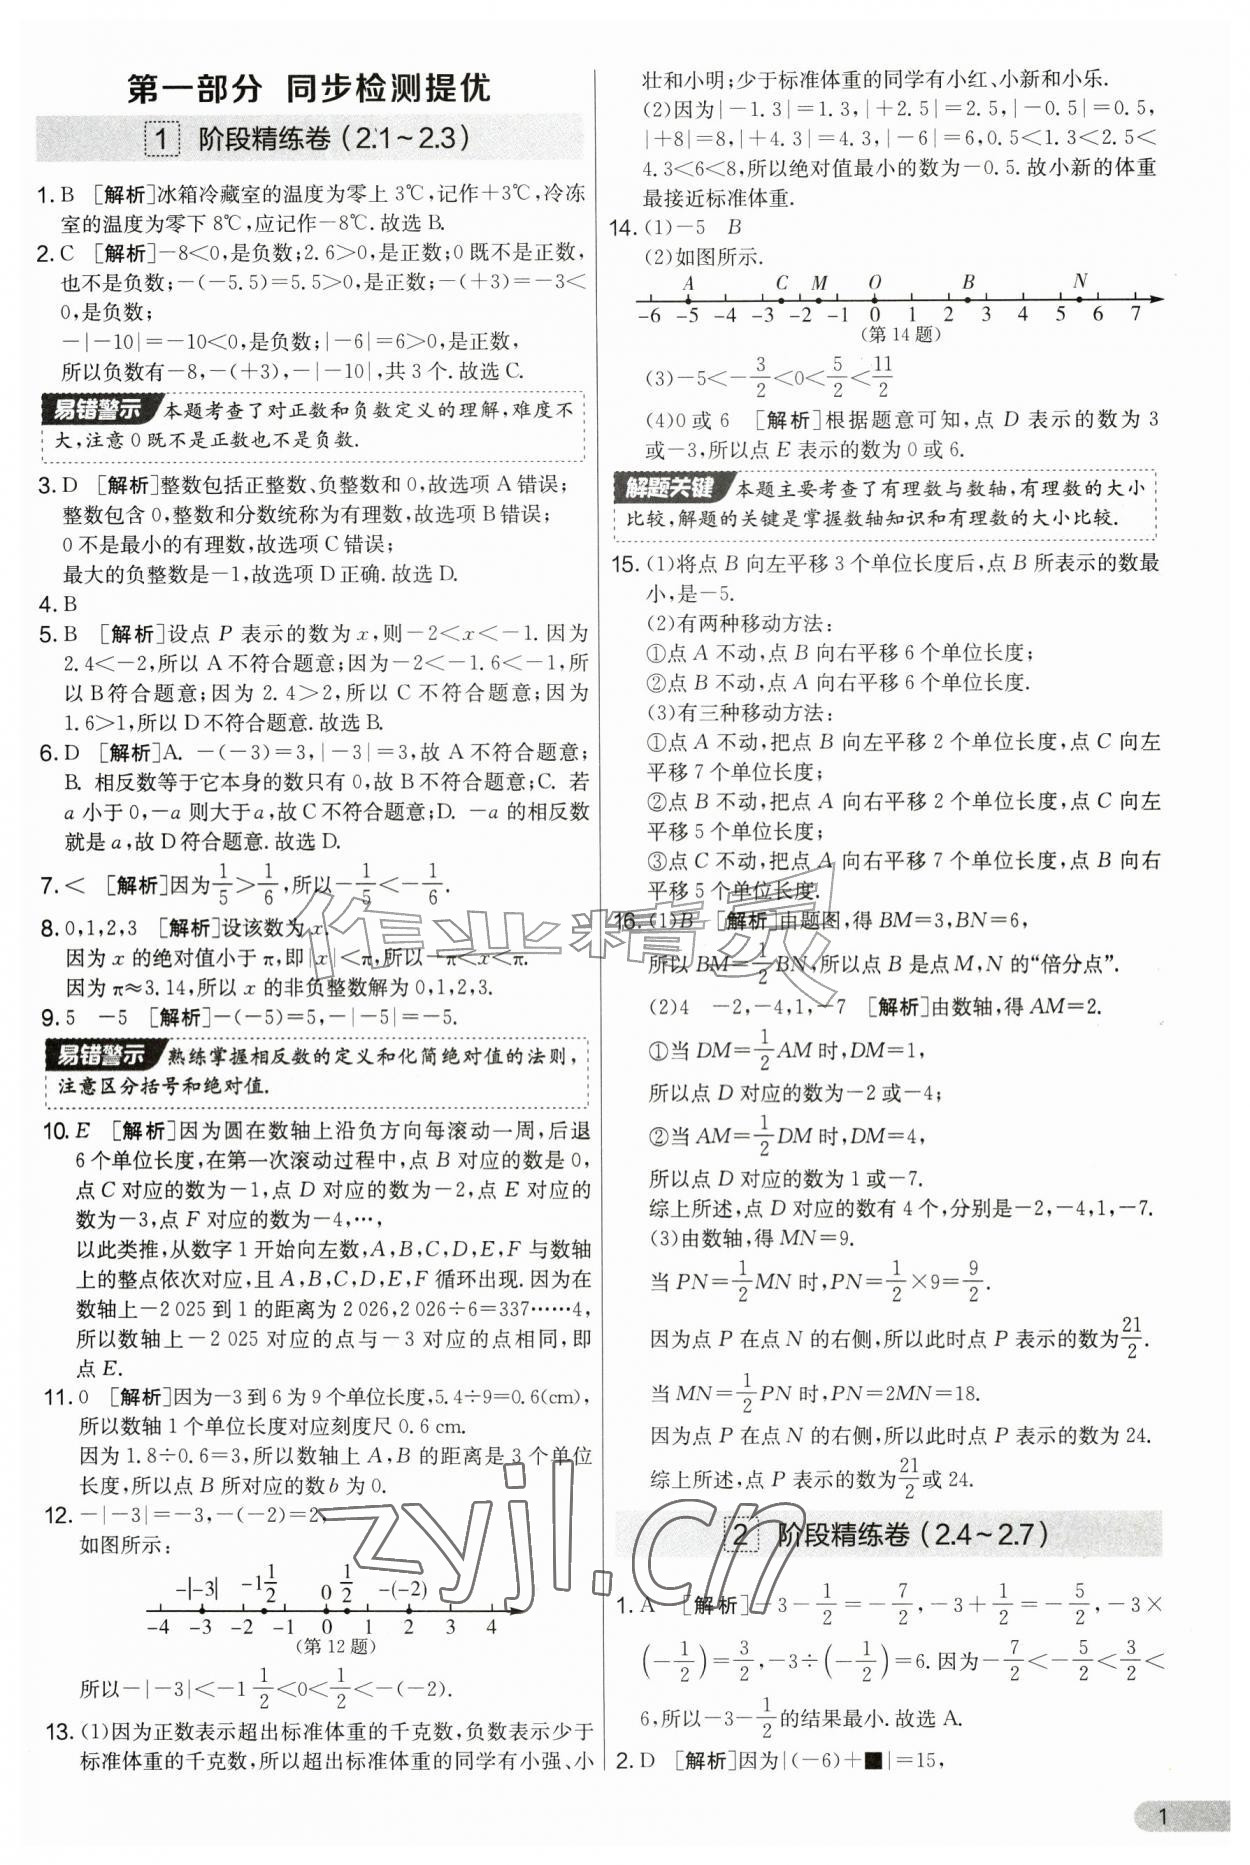 第一部分 同步检测提优
1 阶段精练卷(2.1～2.3)
1. B [解析]冰箱冷藏室的温度为零上 3℃,记作+3℃,冷冻
室的温度为零下 8℃,应记作-8℃.故选 B.
2. C [解析]-8<0,是负数;2.6>0,是正数;0 既不是正数,
也不是负数;-(-5.5)=5.5>0,是正数;-(+3)=-3<
0,是负数;
-|-10|=-10<0,是负数;|-6|=6>0,是正数,
所以负数有-8,-(+3),-|-10|,共 3 个.故选 C.
易错警示 本题考查了对正数和负数定义的理解,难度不
大,注意 0 既不是正数也不是负数.
3. D [解析]整数包括正整数、负整数和 0,故选项 A 错误;
整数包含 0,整数和分数统称为有理数,故选项 B 错误;
0 不是最小的有理数,故选项 C 错误;
最大的负整数是-1,故选项 D 正确.故选 D.
4. B
5. B [解析]设点 P 表示的数为 x,则-2<x<-1.因为
2.4<-2,所以 A 不符合题意;因为-2<-1.6<-1,所
以 B 符合题意;因为 2.4>2,所以 C 不符合题意;因为
1.6>1,所以 D 不符合题意.故选 B.
6. D [解析]A. -(-3)=3,|-3|=3,故 A 不符合题意;
B. 相反数等于它本身的数只有 0,故 B 不符合题意;C. 若
a 小于 0,-a 则大于 a,故 C 不符合题意;D. -a 的相反数
就是 a,故 D 符合题意.故选 D.
7. < [解析]因为1/5>1/6,所以-1/5<-1/6.
8. 0,1,2,3 [解析]设该数为 x.
因为 x 的绝对值小于 π,即|x|<π,所以-π<x<π.
因为 π≈3.14,所以 x 的非负整数解为 0,1,2,3.
9. 5 -5 [解析]-(-5)=5,-|-5|=-5.
易错警示 熟练掌握相反数的定义和化简绝对值的法则,
注意区分括号和绝对值.
10. E [解析]因为圆在数轴上沿负方向每滚动一周,后退
6 个单位长度,在第一次滚动过程中,点 B 对应的数是 0,
点 C 对应的数为-1,点 D 对应的数为-2,点 E 对应的
数为-3,点 F 对应的数为-4,…,
以此类推,从数字 1 开始向左数,A,B,C,D,E,F 与数轴
上的整点依次对应,且 A,B,C,D,E,F 循环出现.因为在
数轴上-2 025 到 1 的距离为 2 026,2 026÷6=337……4,
所以数轴上-2 025 对应的点与-3 对应的点相同,即
点 E.
11. 0 [解析]因为-3 到 6 为 9 个单位长度,5.4÷9=0.6(cm),
所以数轴 1 个单位长度对应刻度尺 0.6 cm.
因为 1.8÷0.6=3,所以数轴上 A,B 的距离是 3 个单位
长度,所以点 B 所对应的数 b 为 0.
12. -|-3|=-3,-(-2)=2,
如图所示:
-|-3| -1 1/2 0 1/2 -(-2)
-4 -3 -2 -1 0 1 2 3 4
(第 12 题)
所以-|-3|<-1 1/2<0<1/2<-(-2).
13. (1)因为正数表示超出标准体重的千克数,负数表示少于
标准体重的千克数,所以超出标准体重的同学有小强、小
壮和小明;少于标准体重的同学有小红、小新和小乐.
(2)因为|-1.3|=1.3,|+2.5|=2.5,|-0.5|=0.5,
|+8|=8,|+4.3|=4.3,|-6|=6,0.5<1.3<2.5<
4.3<6<8,所以绝对值最小的数为-0.5.故小新的体重
最接近标准体重.
14. (1)-5 B
(2)如图所示.
A C M O B N
-6 -5 -4 -3 -2 -1 0 1 2 3 4 5 6 7
(第 14 题)
(3)-5<-3/2<0<5/2<11/2
(4)0 或 6 [解析]根据题意可知,点 D 表示的数为 3
或-3,所以点 E 表示的数为 0 或 6.
解题关键 本题主要考查了有理数与数轴,有理数的大小
比较,解题的关键是掌握数轴知识和有理数的大小比较.
15. (1)将点 B 向左平移 3 个单位长度后,点 B 所表示的数最
小,是-5.
(2)有两种移动方法:
①点 A 不动,点 B 向右平移 6 个单位长度;
②点 B 不动,点 A 向右平移 6 个单位长度.
(3)有三种移动方法:
①点 A 不动,把点 B 向左平移 2 个单位长度,点 C 向左
平移 7 个单位长度;
②点 B 不动,把点 A 向右平移 2 个单位长度,点 C 向左
平移 5 个单位长度;
③点 C 不动,把点 A 向右平移 7 个单位长度,点 B 向右
平移 5 个单位长度.
16. (1)B [解析]由题图,得 BM=3,BN=6,
所以 BM=1/2BN,所以点 B 是点 M,N 的“倍分点”.
(2)4 -2,-4,1,-7 [解析]由数轴,得 AM=2.
①当 DM=1/2AM 时,DM=1,
所以点 D 对应的数为-2 或-4;
②当 AM=1/2DM 时,DM=4,
所以点 D 对应的数为 1 或-7.
综上所述,点 D 对应的数有 4 个,分别是-2,-4,1,-7.
(3)由数轴,得 MN=9.
当 PN=1/2MN 时,PN=1/2×9=9/2.
因为点 P 在点 N 的右侧,所以此时点 P 表示的数为21/2.
当 MN=1/2PN 时,PN=2MN=18.
因为点 P 在点 N 的右侧,所以此时点 P 表示的数为 24.
综上所述,点 P 表示的数为21/2或 24.
2 阶段精练卷(2.4～2.7)
1. A [解析]-3-1/2=-7/2,-3+1/2=-5/2,-3×
(-1/2)=3/2,-3÷(-1/2)=6.因为-7/2<-5/2<3/2<
6,所以-3-1/2的结果最小.故选 A.
2. D [解析]因为|(-6)+■|=15,
作业精灵
zyjl.cn
1